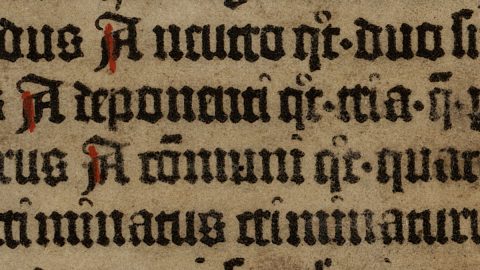 dus A neutro qͦt· duo si
A deponenti qͦt· tria· q̄
rus A cōmuni qͦt· quat
criminatus criminaturu